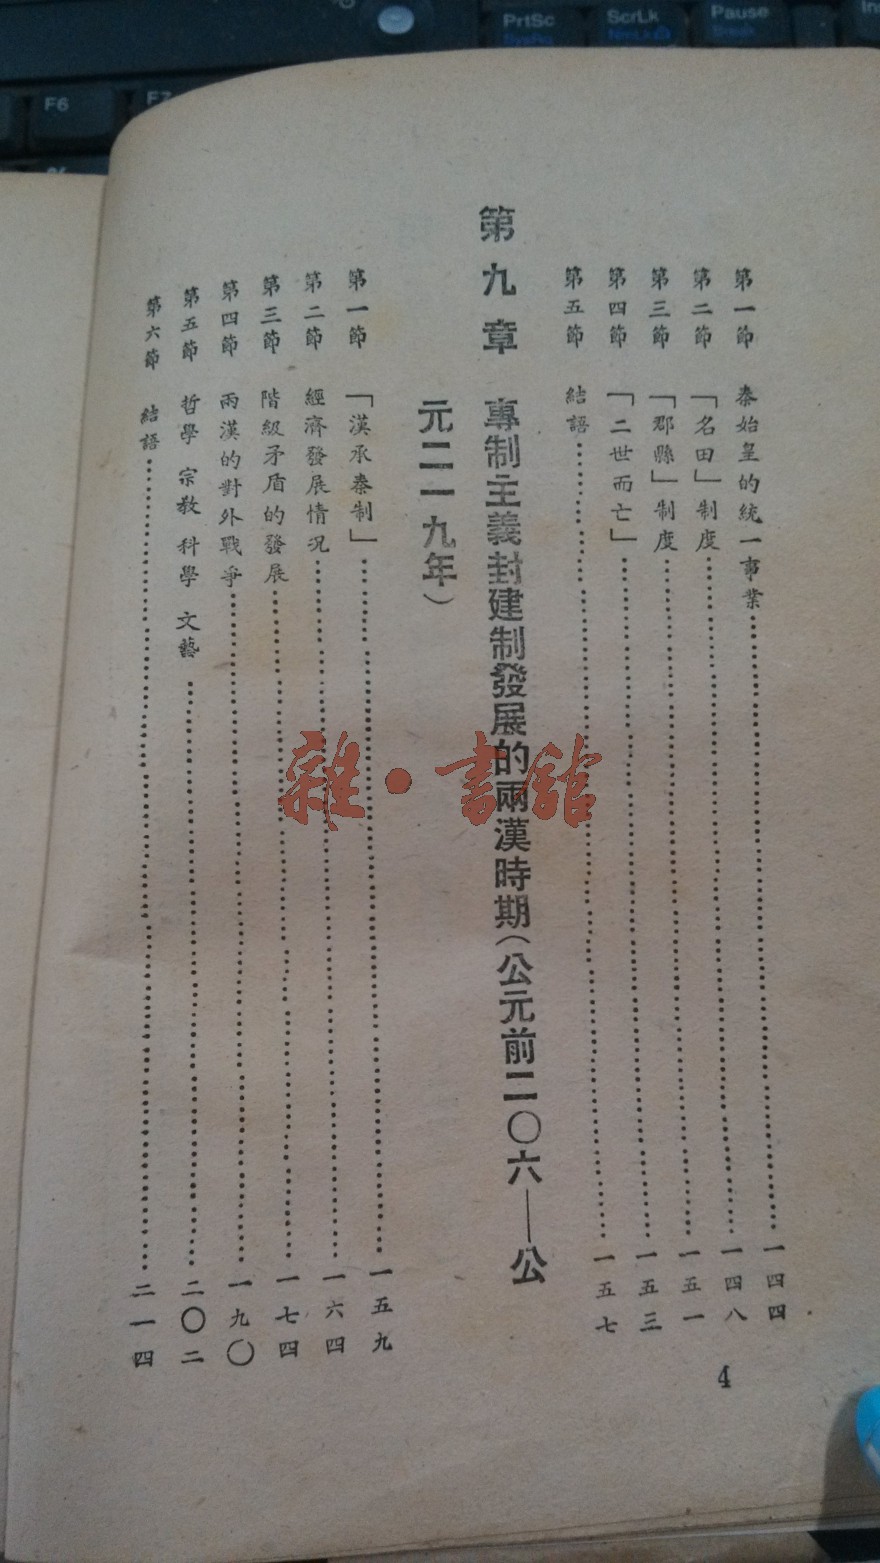 PrtSc
SysRq
ScrLk
NmLk
Pause
Break
F6
F7
第一節 秦始皇的統一事業……一四四
第二節 「名田」制度……一四八
第三節 「郡縣」制度……一五一
第四節 「二世而亡」……一五三
第五節 結語……一五七
第九章 專制主義封建制發展的兩漢時期(公元前二〇六——公
元二一九年)
第一節 「漢承秦制」……一五九
第二節 經濟發展情况……一六四
第三節 階級矛盾的發展……一七四
第四節 兩漢的對外戰爭……一九〇
第五節 哲學 宗教 科學 文藝……二〇二
第六節 結語……二一四
雜·書館
4